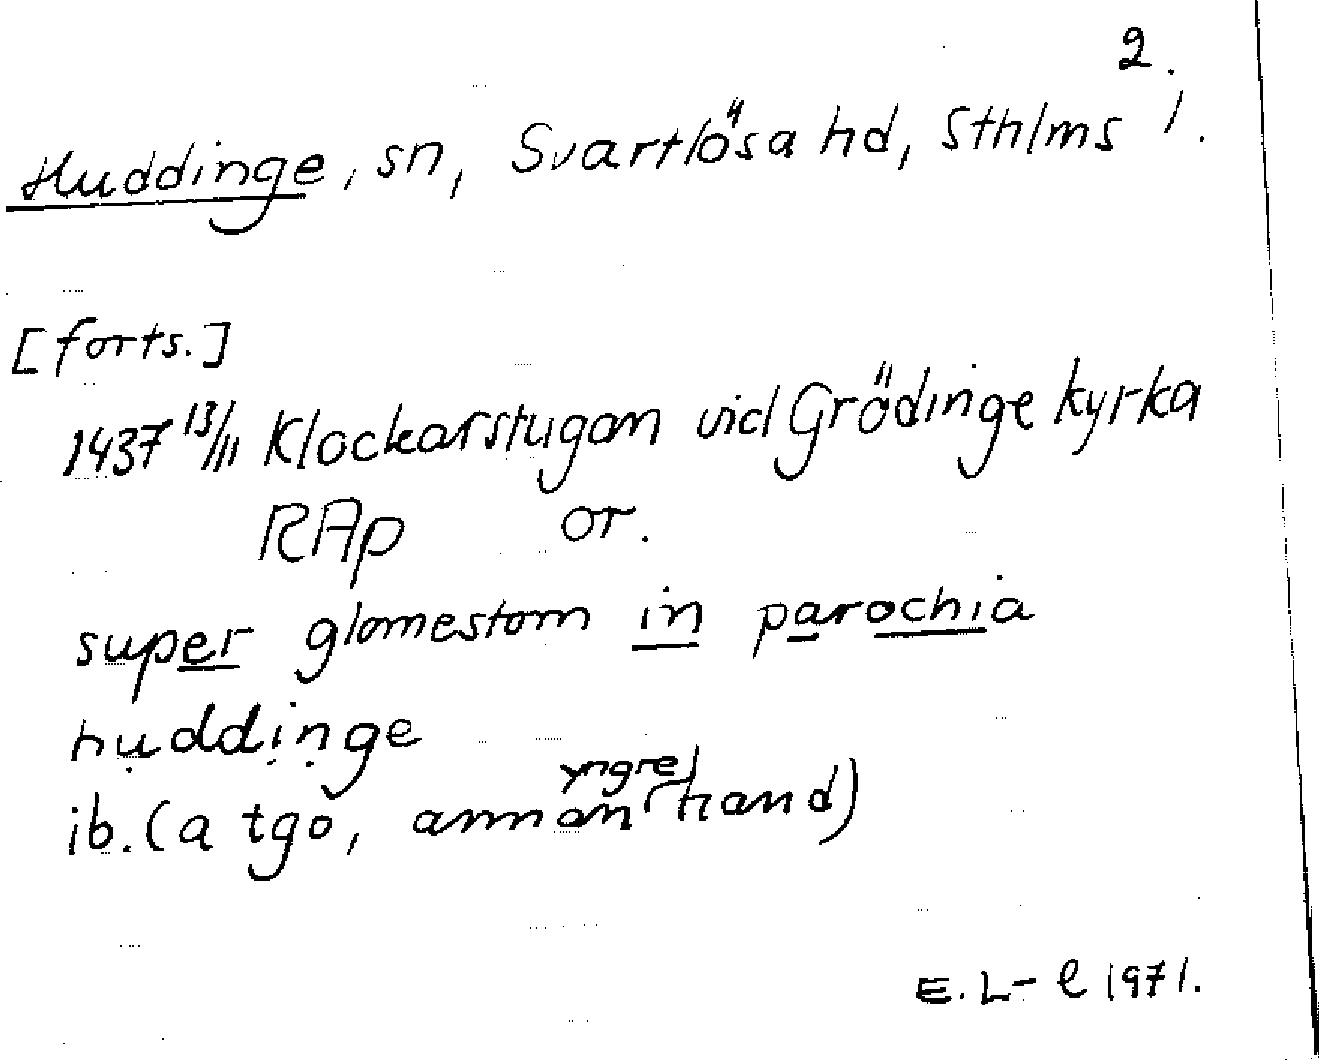 2.
Huddinge, sn, Svartlösa hd, Sthlms l.
[forts.]
1437 13/III Klockarstugan vid Grödinge kyrka
RAp or.
super glomestom in parochia
huddinge
yngre
ib. (a tgo, annan hand)
E. L-l 1971.